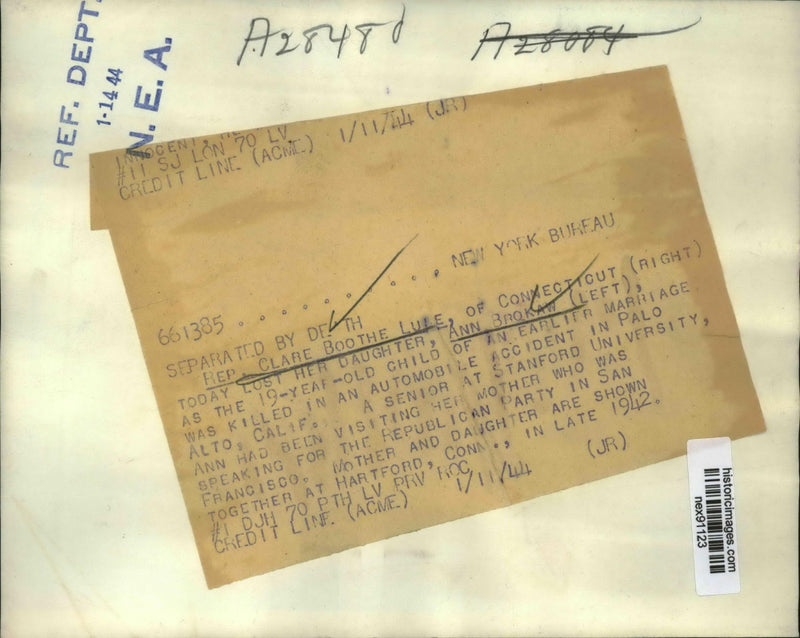 A2848
A28084
REF. DEPT.
1-14 44
N. E. A.
INNOCENT,
#11 SJ LON 70 LV
CREDIT LINE (ACME) 1/11/44 (JR)
661385 . . . . . . . . . . . NEW YORK BUREAU
SEPARATED BY DEATH
REP. CLARE BOOTHE LUCE, OF CONNECTICUT (RIGHT)
TODAY LOST HER DAUGHTER, ANN BROKAW (LEFT),
AS THE 19-YEAR-OLD CHILD OF AN EARLIER MARRIAGE
WAS KILLED IN AN AUTOMOBILE ACCIDENT IN PALO
ALTO, CALIF. A SENIOR AT STANFORD UNIVERSITY,
ANN HAD BEEN VISITING HER MOTHER WHO WAS
SPEAKING FOR THE REPUBLICAN PARTY IN SAN
FRANCISCO. MOTHER AND DAUGHTER ARE SHOWN
TOGETHER AT HARTFORD, CONN., IN LATE 1942.
#1 DJH 70 PTH LV PRV ROC (JR)
CREDIT LINE (ACME) 1/11/44
historicimages.com
nex91123